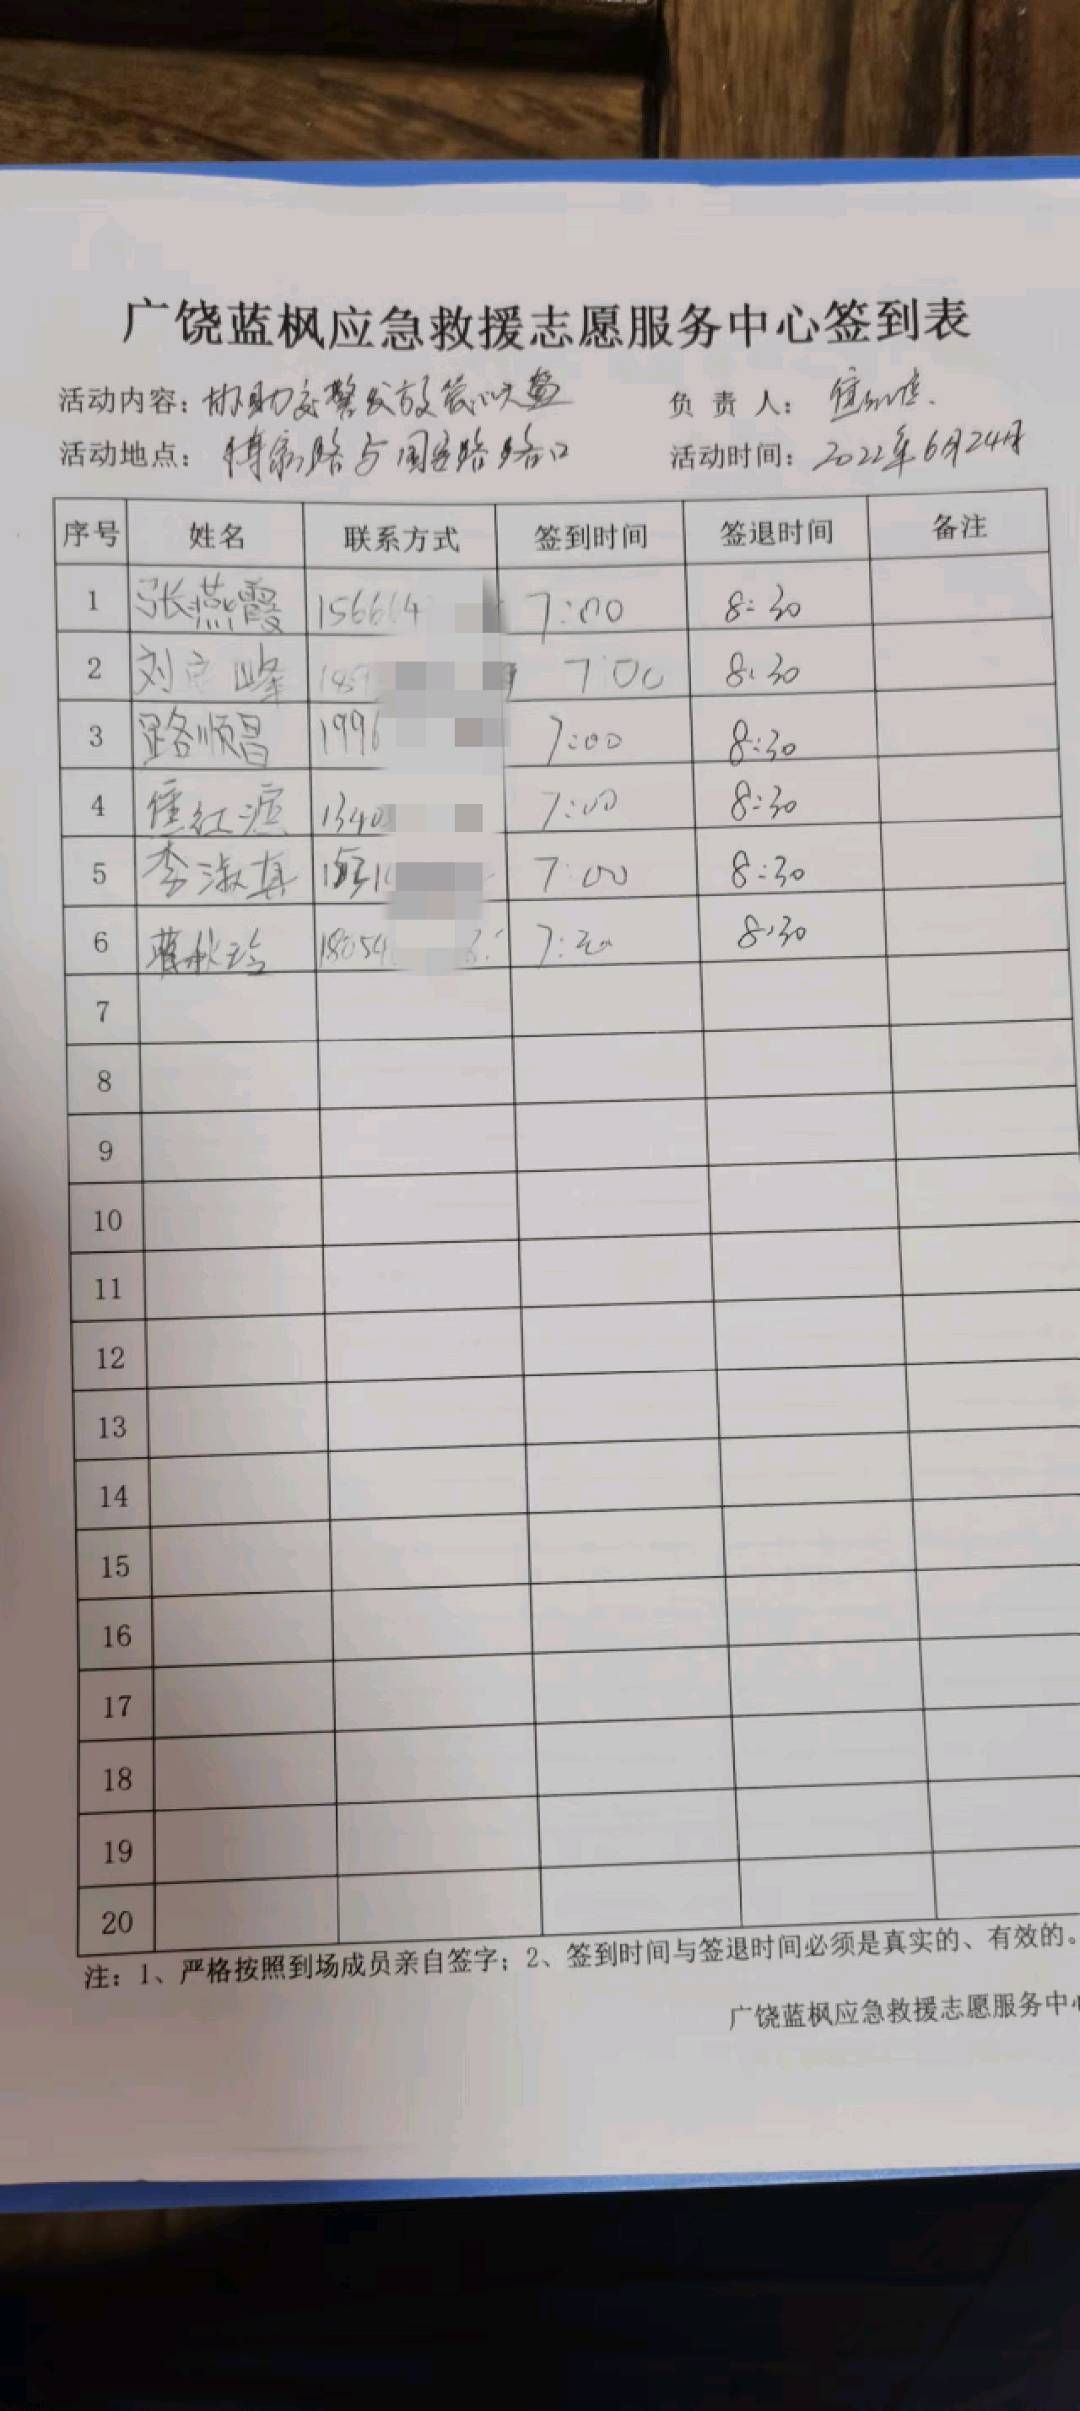 广饶蓝枫应急救援志愿服务中心签到表
活动内容：协助交警发放安心头盔 负责人：
活动地点：博新路与国安路路口 活动时间：2022年6月24日
序号 姓名 联系方式 签到时间 签退时间 备注
1 张燕霞 156664 7:00 8:30
2 刘 峰 189 7:00 8:30
3 路顺昌 1996 7:00 8:30
4 红 1340 7:00 8:30
5 李淑真 7:00 8:30
6 蒋秋玲 18054 7:20 8:30
7
8
9
10
11
12
13
14
15
16
17
18
19
20
注：1、严格按照到场成员亲自签字；2、签到时间与签退时间必须是真实的、有效的。
广饶蓝枫应急救援志愿服务中心